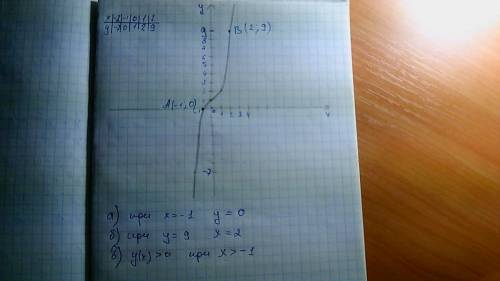 x | -2 | -1 | 0 | 1 | 2
y | -7 | 0 | 1 | 2 | 9
y
B(2; 9)
A(-1; 0)
1 2 3 4
-7
а) при x=-1 y=0
б) при y=9 x=2
в) y(x)>0 при x>-1